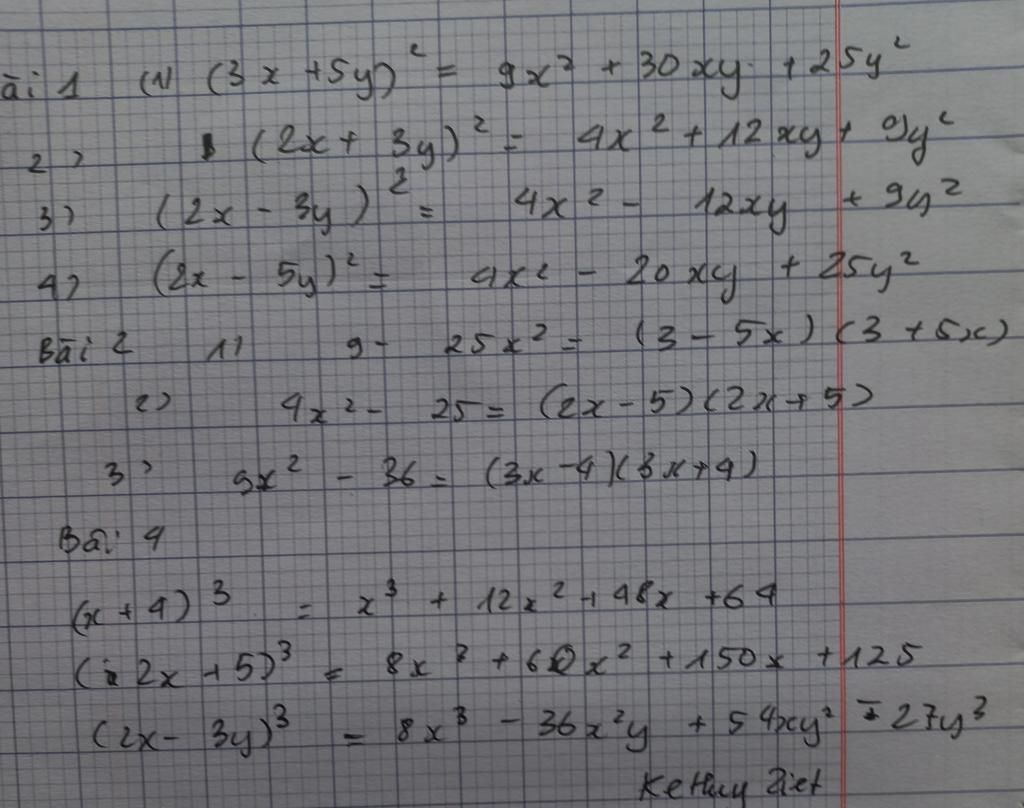 ài 1 (1) (3x + 5y)² = 9x² + 30xy + 25y²
2) (2x + 3y)² = 4x² + 12xy + 9y²
3) (2x - 3y)² = 4x² - 12xy + 9y²
4) (2x - 5y)² = 4x² - 20xy + 25y²
Bài 2 1) 9 - 25x² = (3 - 5x)(3 + 5x)
2) 4x² - 25 = (2x - 5)(2x + 5)
3) 9x² - 36 = (3x - 4)(3x + 4)
Bài 4
(x + 4)³ = x³ + 12x² + 48x + 64
(2x + 5)³ = 8x³ + 60x² + 150x + 125
(2x - 3y)³ = 8x³ - 36x²y + 54xy² - 27y³